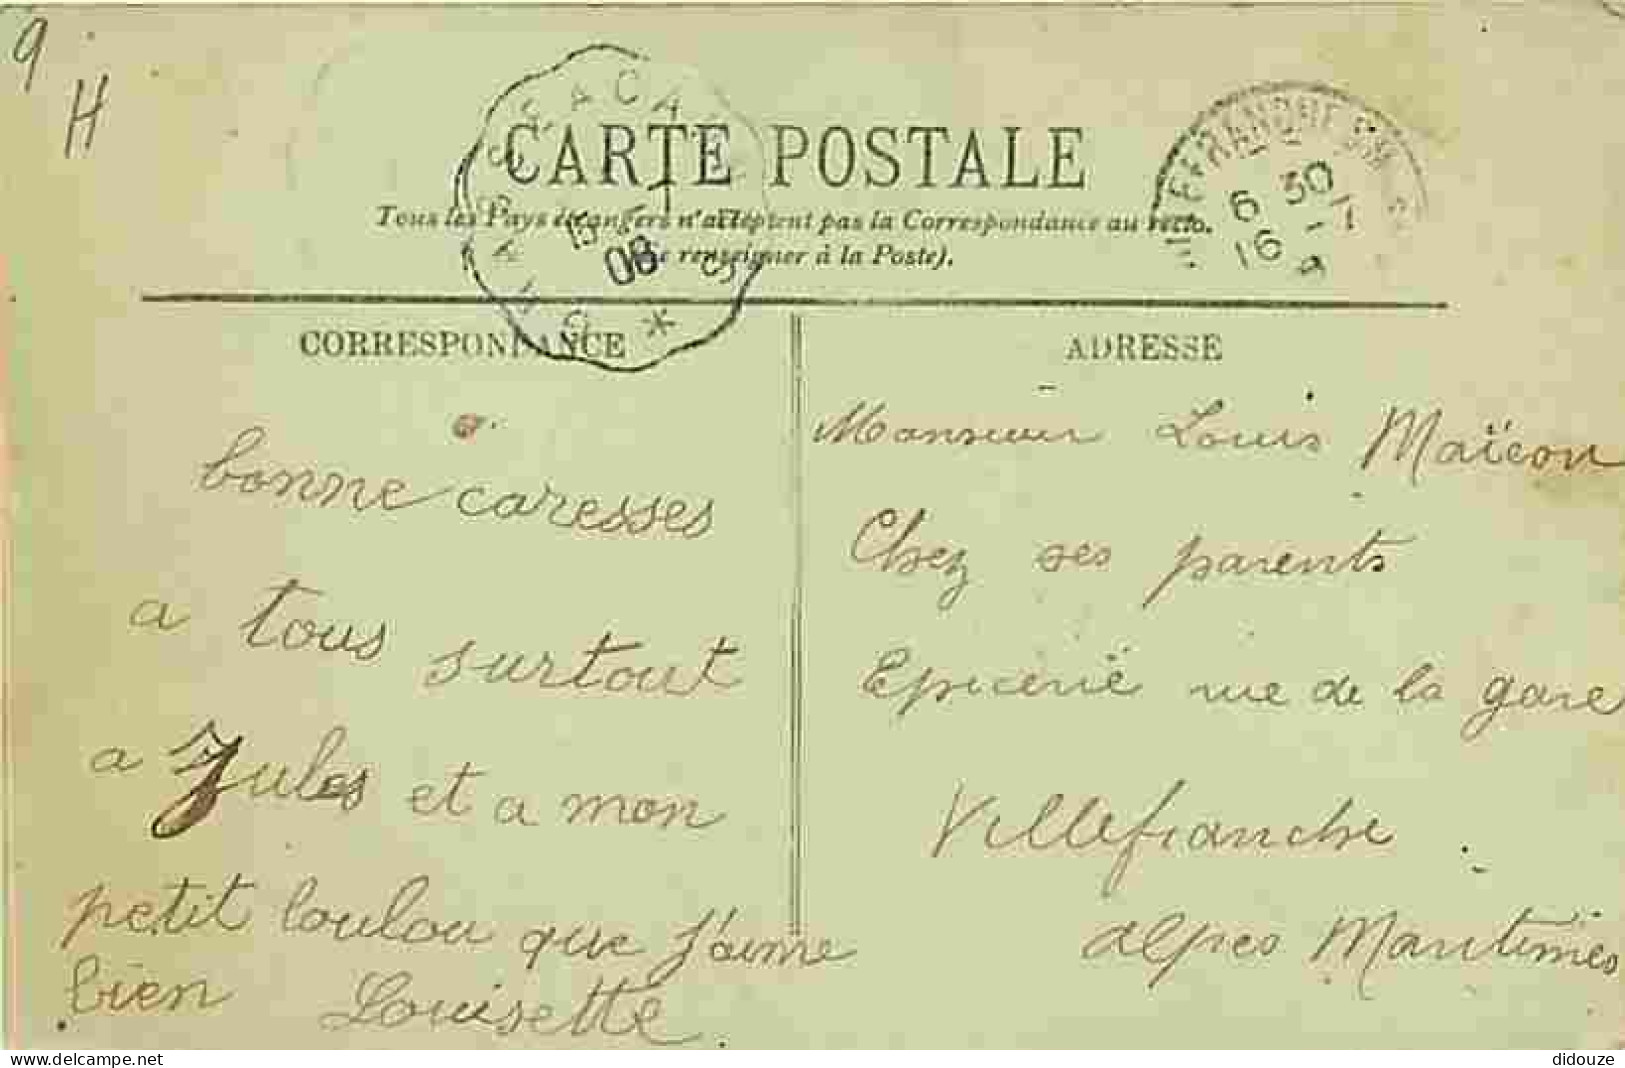 9
H
CARTE POSTALE
Tous les Pays étrangers n'acceptent pas la Correspondance au recto.
renseigner à la Poste).
08
6 30
16 - 1
CORRESPONDANCE
ADRESSE
bonne caresses
a tous surtout
a Jules et a mon
petit loulou que j'aime
bien Louisette
Monsieur Louis Maïcon
Chez ses parents
Epicerie rue de la gare
Villefranche
alpes Maritimes
delcampe.net
didouze